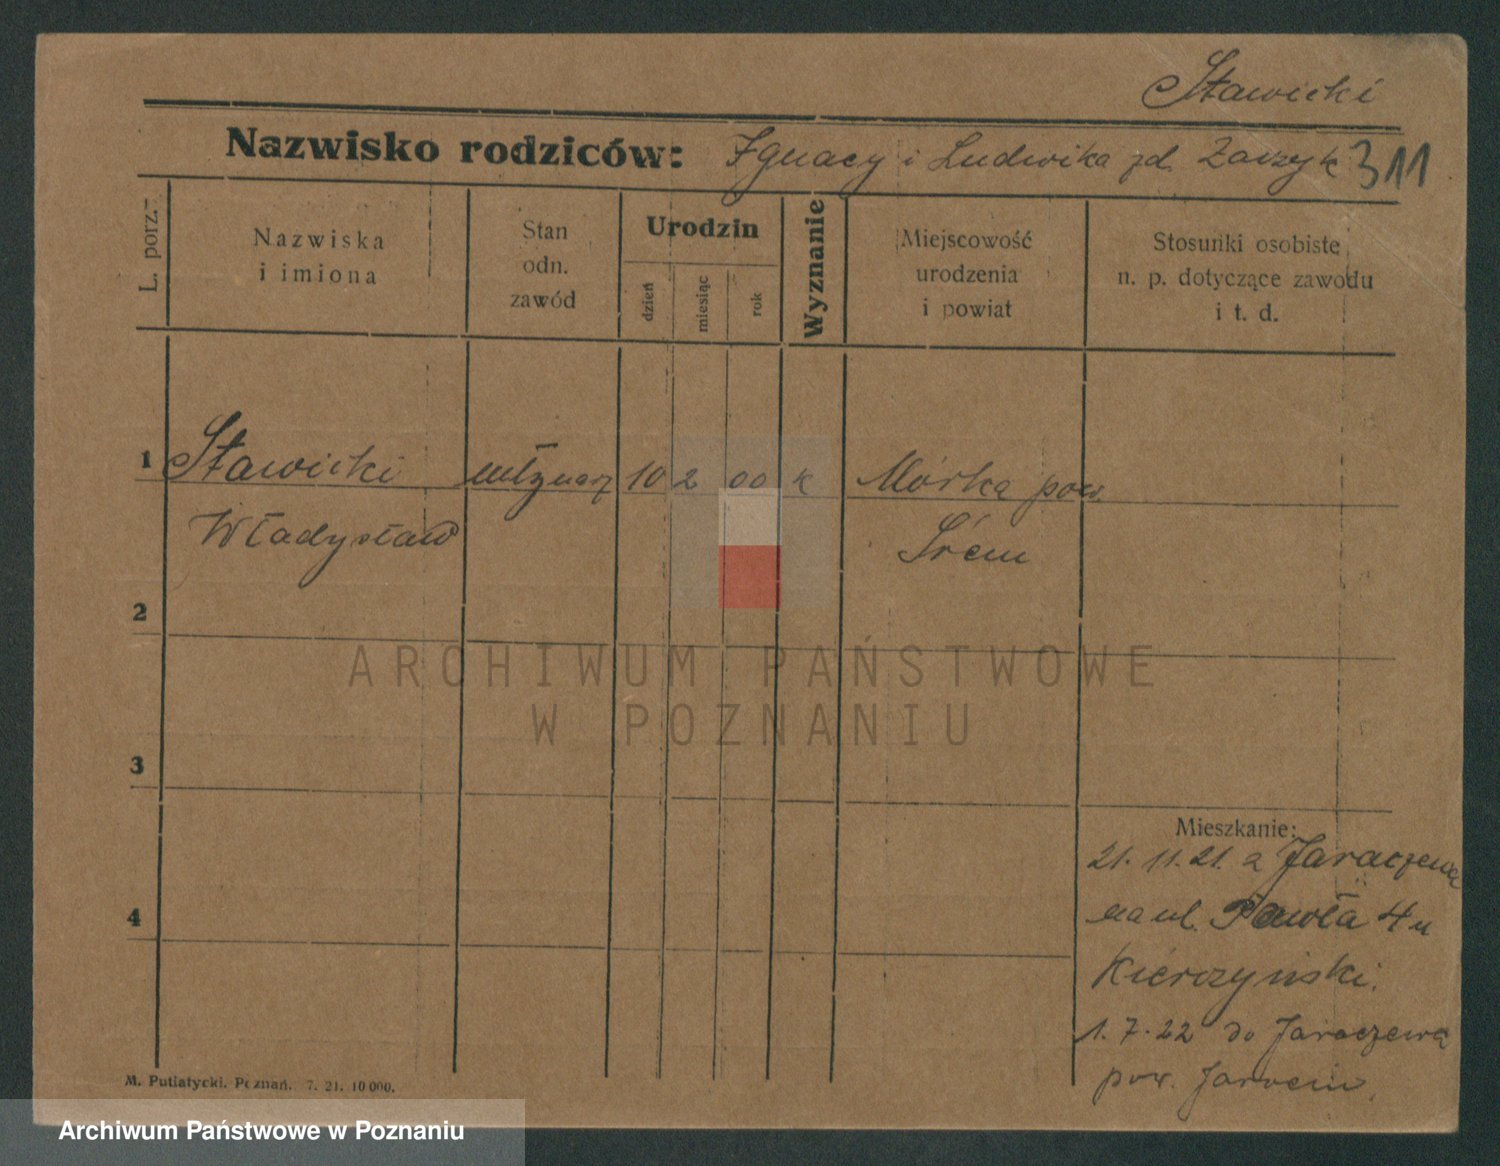 Stawicki
Nazwisko rodziców: Ignacy i Ludwika zd. 311
L. porz.
Nazwiska
i imiona
Stan
odn.
zawód
Urodzin
dzień
miesiąc
rok
Wyznanie
Miejscowość
urodzenia
i powiat
Stosunki osobiste
n. p. dotyczące zawodu
i t. d.
1 Stawicki młynarz 10 2 00 k Mórka pow.
Władysław Śrem
2
ARCHIWUM PAŃSTWOWE
W POZNANIU
3
Mieszkanie:
21. 11. 21. z Jaraczewa
4 na ul. Pawła 4 u
Kierczyński.
1. 7. 22 do Jaraczewa
pow. Jarocin
M. Putiatycki. Poznań. 7. 21. 10 000.
Archiwum Państwowe w Poznaniu